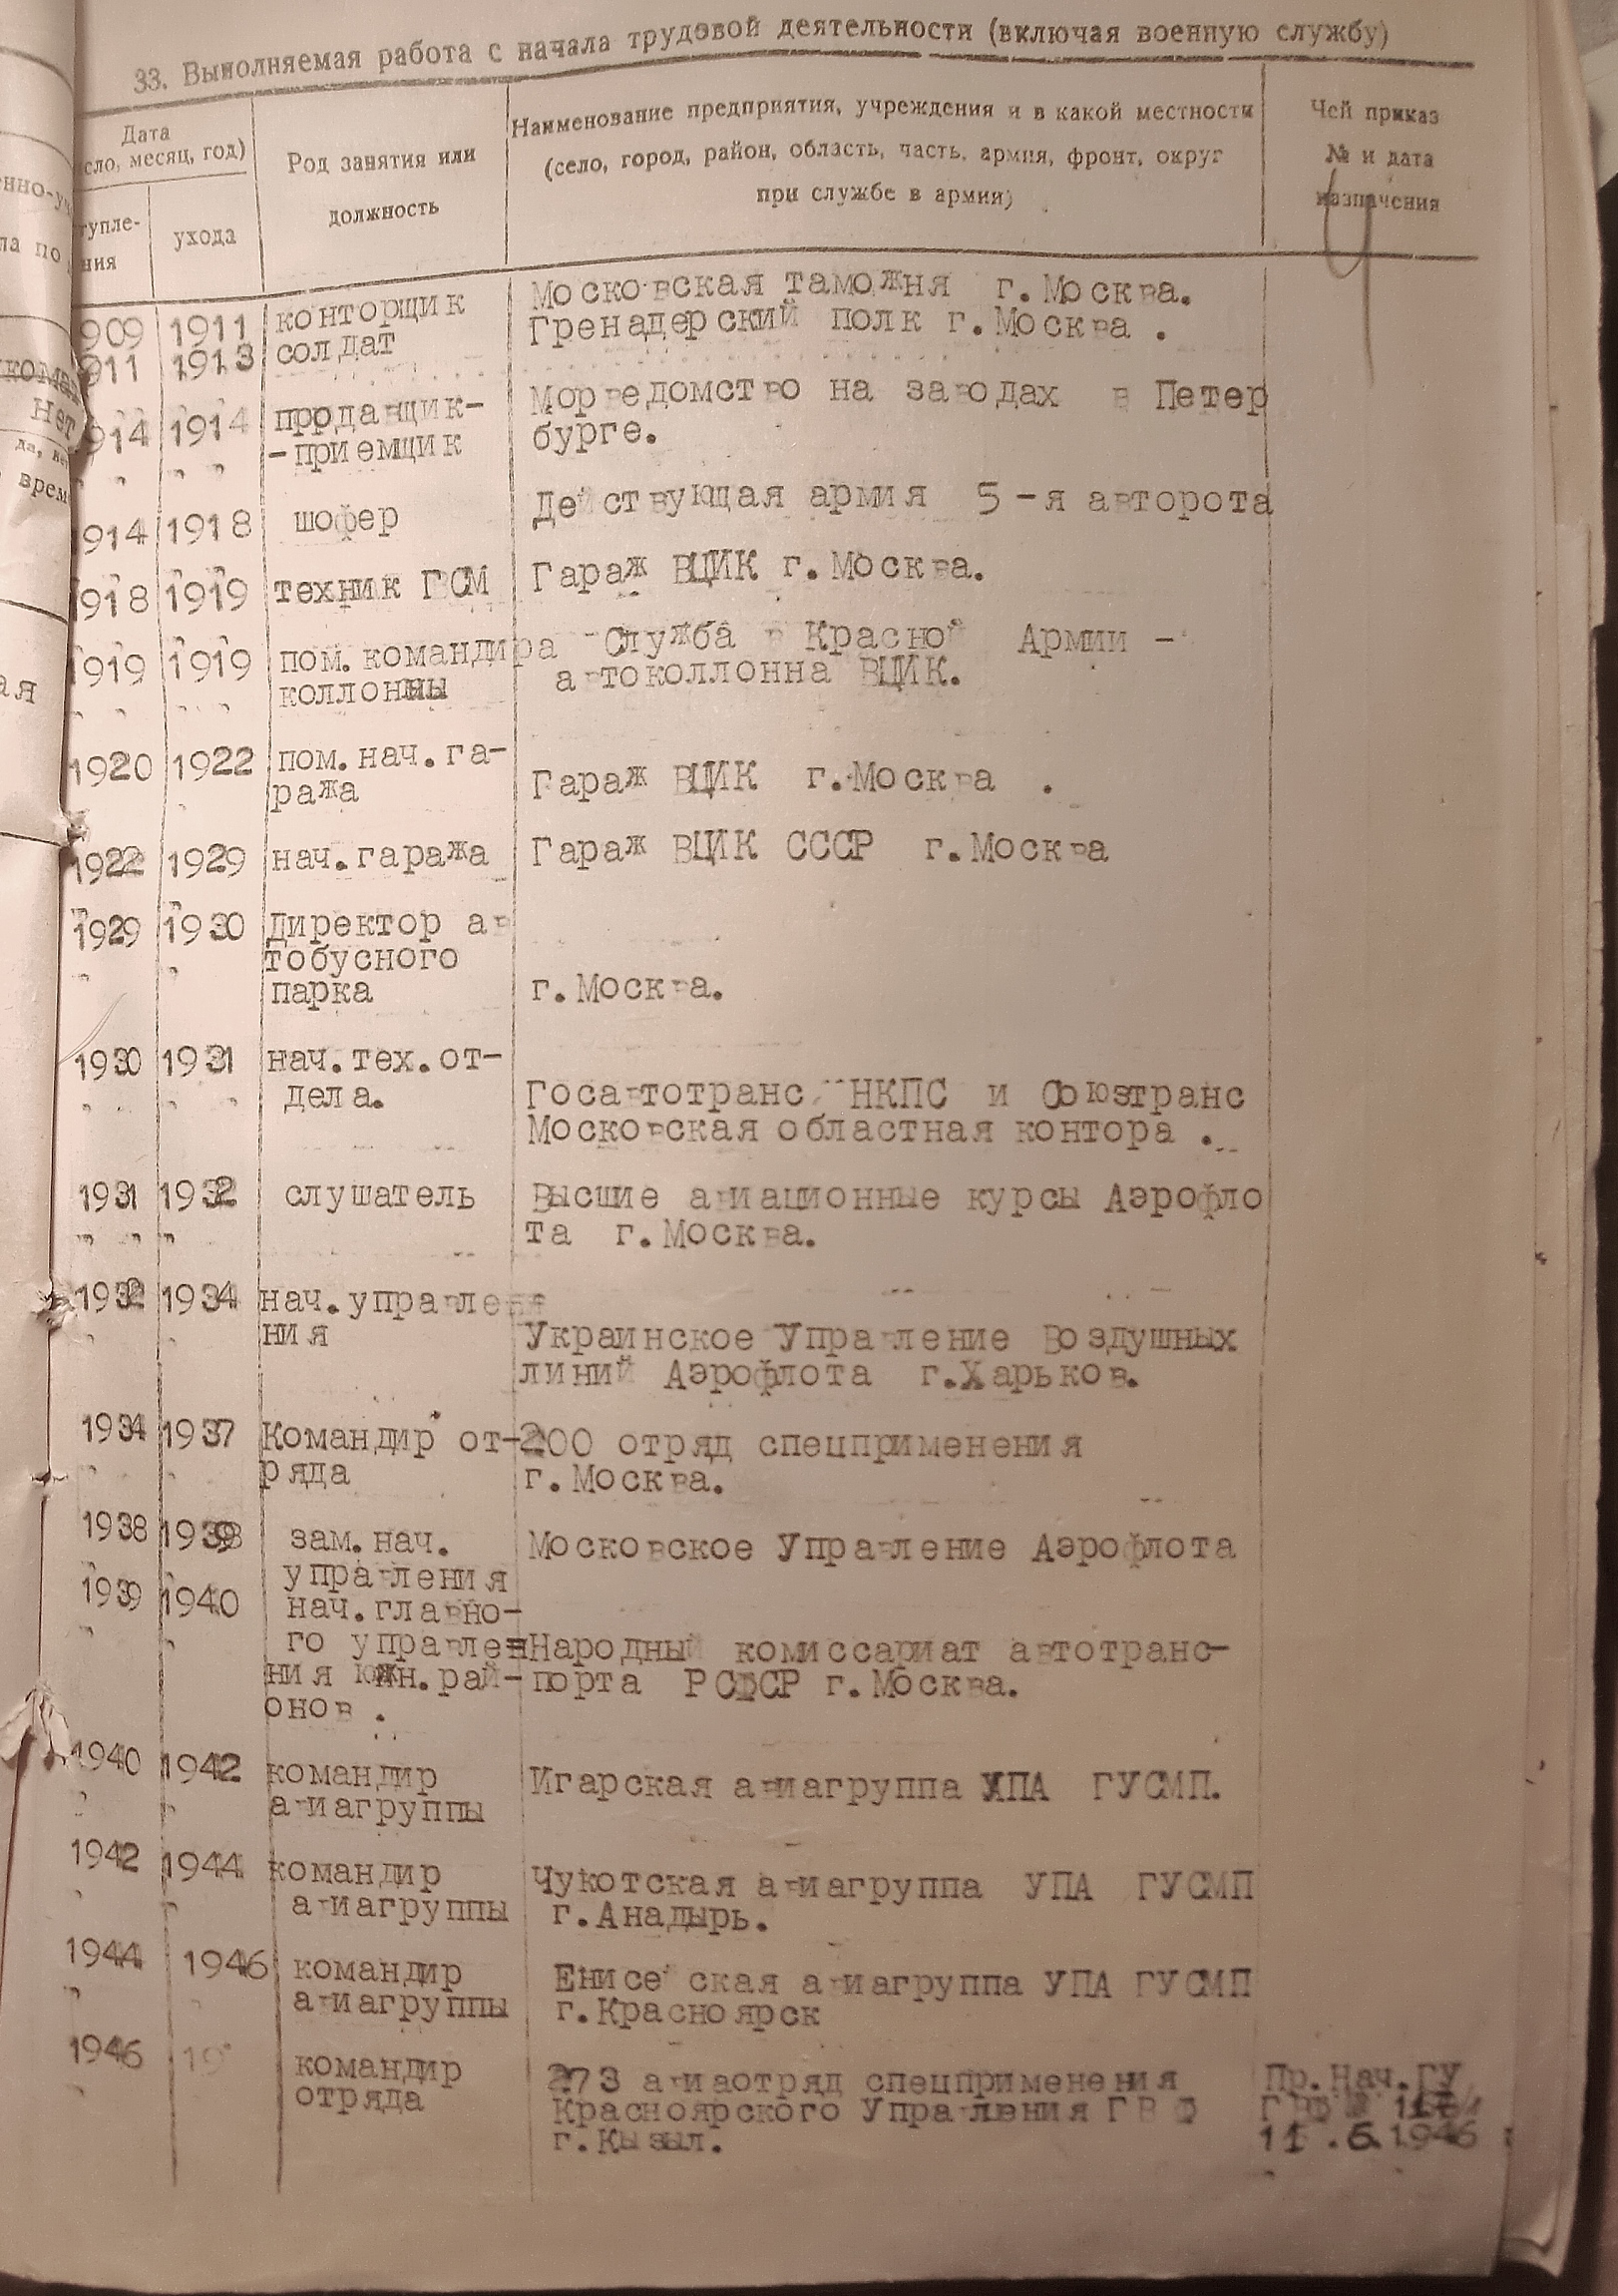 33. Выполняемая работа с начала трудовой деятельности (включая военную службу)
Дата
сло, месяц, год)
тупле-
ния
ухода
Род занятия или
должность
Наименование предприятия, учреждения и в какой местности
(село, город, район, область, часть, армия, фронт, округ
при службе в армия)
Чей приказ
№ и дата
назначения
909 1911 конторщик Московская таможня г.Москва.
911 1913 солдат Гренадерский полк г.Москва .
914 1914 проданщик- Морведомство на заводах в Петер
-приемщик бурге.
914 1918 шофер Действующая армия 5-я авторота
1918 1919 техник ГСМ Гараж ВЦИК г.Москва.
1919 1919 пом.командира Служба в Красной Армии -
коллонны автоколлонна ВЦИК.
1920 1922 пом.нач.га-
ража Гараж ВЦИК г.Москва .
1922 1929 нач.гаража Гараж ВЦИК СССР г.Москва
1929 1930 Директор ав
тобусного
парка г.Москва.
1930 1931 нач.тех.от-
дела. Госавтотранс НКПС и Союзтранс
Московская областная контора .
1931 1932 слушатель Высшие авиационные курсы Аэрофло
та г.Москва.
1932 1934 нач.управлен
ния Украинское Управление Воздушных
линий Аэрофлота г.Харьков.
1934 1937 Командир от- 200 отряд спецприменения
ряда г.Москва.
1938 зам.нач. Московское Управление Аэрофлота
управления
1939 1940 нач.главно-
го управлен Народный комиссариат автотранс-
ния южн.рай- порта РСФСР г.Москва.
онов .
1940 1942 командир Игарская авиагруппа УПА ГУСМП.
авиагруппы
1942 1944 командир Чукотская авиагруппа УПА ГУСМП
авиагруппы г.Анадырь.
1944 1946 командир Енисейская авиагруппа УПА ГУСМП
авиагруппы г.Красноярск
1946 19 командир 273 авиаотряд спецприменения Пр.Нач.ГУ
отряда Красноярского Управления ГВФ ГВФ
г.Кызыл. 11.6.1946
нно-уч
ла по
Нет
да, нет
врем
ая